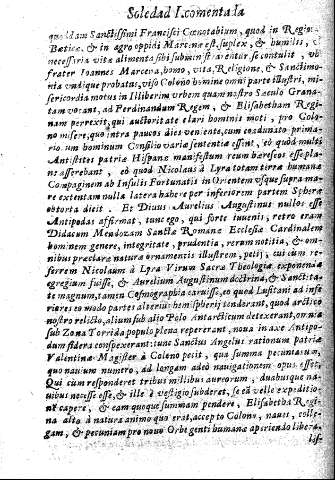 Soledad I. comentada
quoddam Sanctissimi Francisci Cœnotabium, quod in Regione
Betica, & in agro oppidi Marcena est, suplex, & humilis, &
necessaria vitæ alimenta sibi subministrarentur, se contulit,
frater Ioannes Marcena, homo, vita, Religione, & Sanctimo-
nia vndique probatus, viso Coleno homine omni parte illustri, mi-
sericordia motus in Illiberim vrbem quam nostro Sæculo Grana-
tam vocant, ad Ferdinandum Regem, & Elisabetham Regi-
nam perrexit, qui auctoritate clari hominis moti, pro Colo-
no misere, quo intra paucos dies veniente, cum coadunato prima-
rio-um hominum Consilio variæ sententiæ essent, eò quod multi
Antistites patriæ Hispanæ manifestum reum hæreseos esse pla-
nè asserebant, eò quod Nicolaus à Lyra totam terræ humanæ
Compaginem ab Insulis Fortunatis in Orientem vsque supra ma-
re extentam nulla latera habere per inferiorem partem Spheræ
obtorta dicit. Et Diuus Aurelius Augustinus nullos esse
Antipodas affirmat, tunc ego, qui fortè iuuenis, retro eram
Didacum Mendozam Sanctæ Romanæ Ecclesiæ Cardinalem
hominem genere, integritate, prudentia, rerum notitia, & om-
nibus præclaræ naturæ ornamentis illustrem, petij, cui cum re-
ferrem Nicolaum à Lyra Virum Sacræ Theologiæ exponendæ
egregium fuisse, & Aurelium Augustinum doctrina, & Sanctita-
te magnum, tamen Cosmographia caruisse, eo quod Lusitani ad infe-
riores eo modo partes alterius hemispherij tenderant, quod arctico
nostro relicto, alium sub alio Polo Antarcticum detexerant, omnia
sub Zona Torrida populo plena repererant, noua in axe Antipo-
dum sidera conspexerant: tunc Sanctus Angelus rationum patriæ
Valentinæ Magister à Coleno petit, qua summa pecuniarum,
quo nauium numero, ad longam adeò navigationem opus esset;
Qui cum responderet tribus millibus aureorum, duabusque na-
uibus necesse esse, & ille è vestigio subderet, se eā velle expeditio-
nē capere, & eam quoque summam pendere, Elisabetha Regi-
na alto à natura animo quo erat, accepto Colono, naues, colle-
gam, & pecuniam pro nouo Orbe genti humanæ aperiendo liberali-
lis-